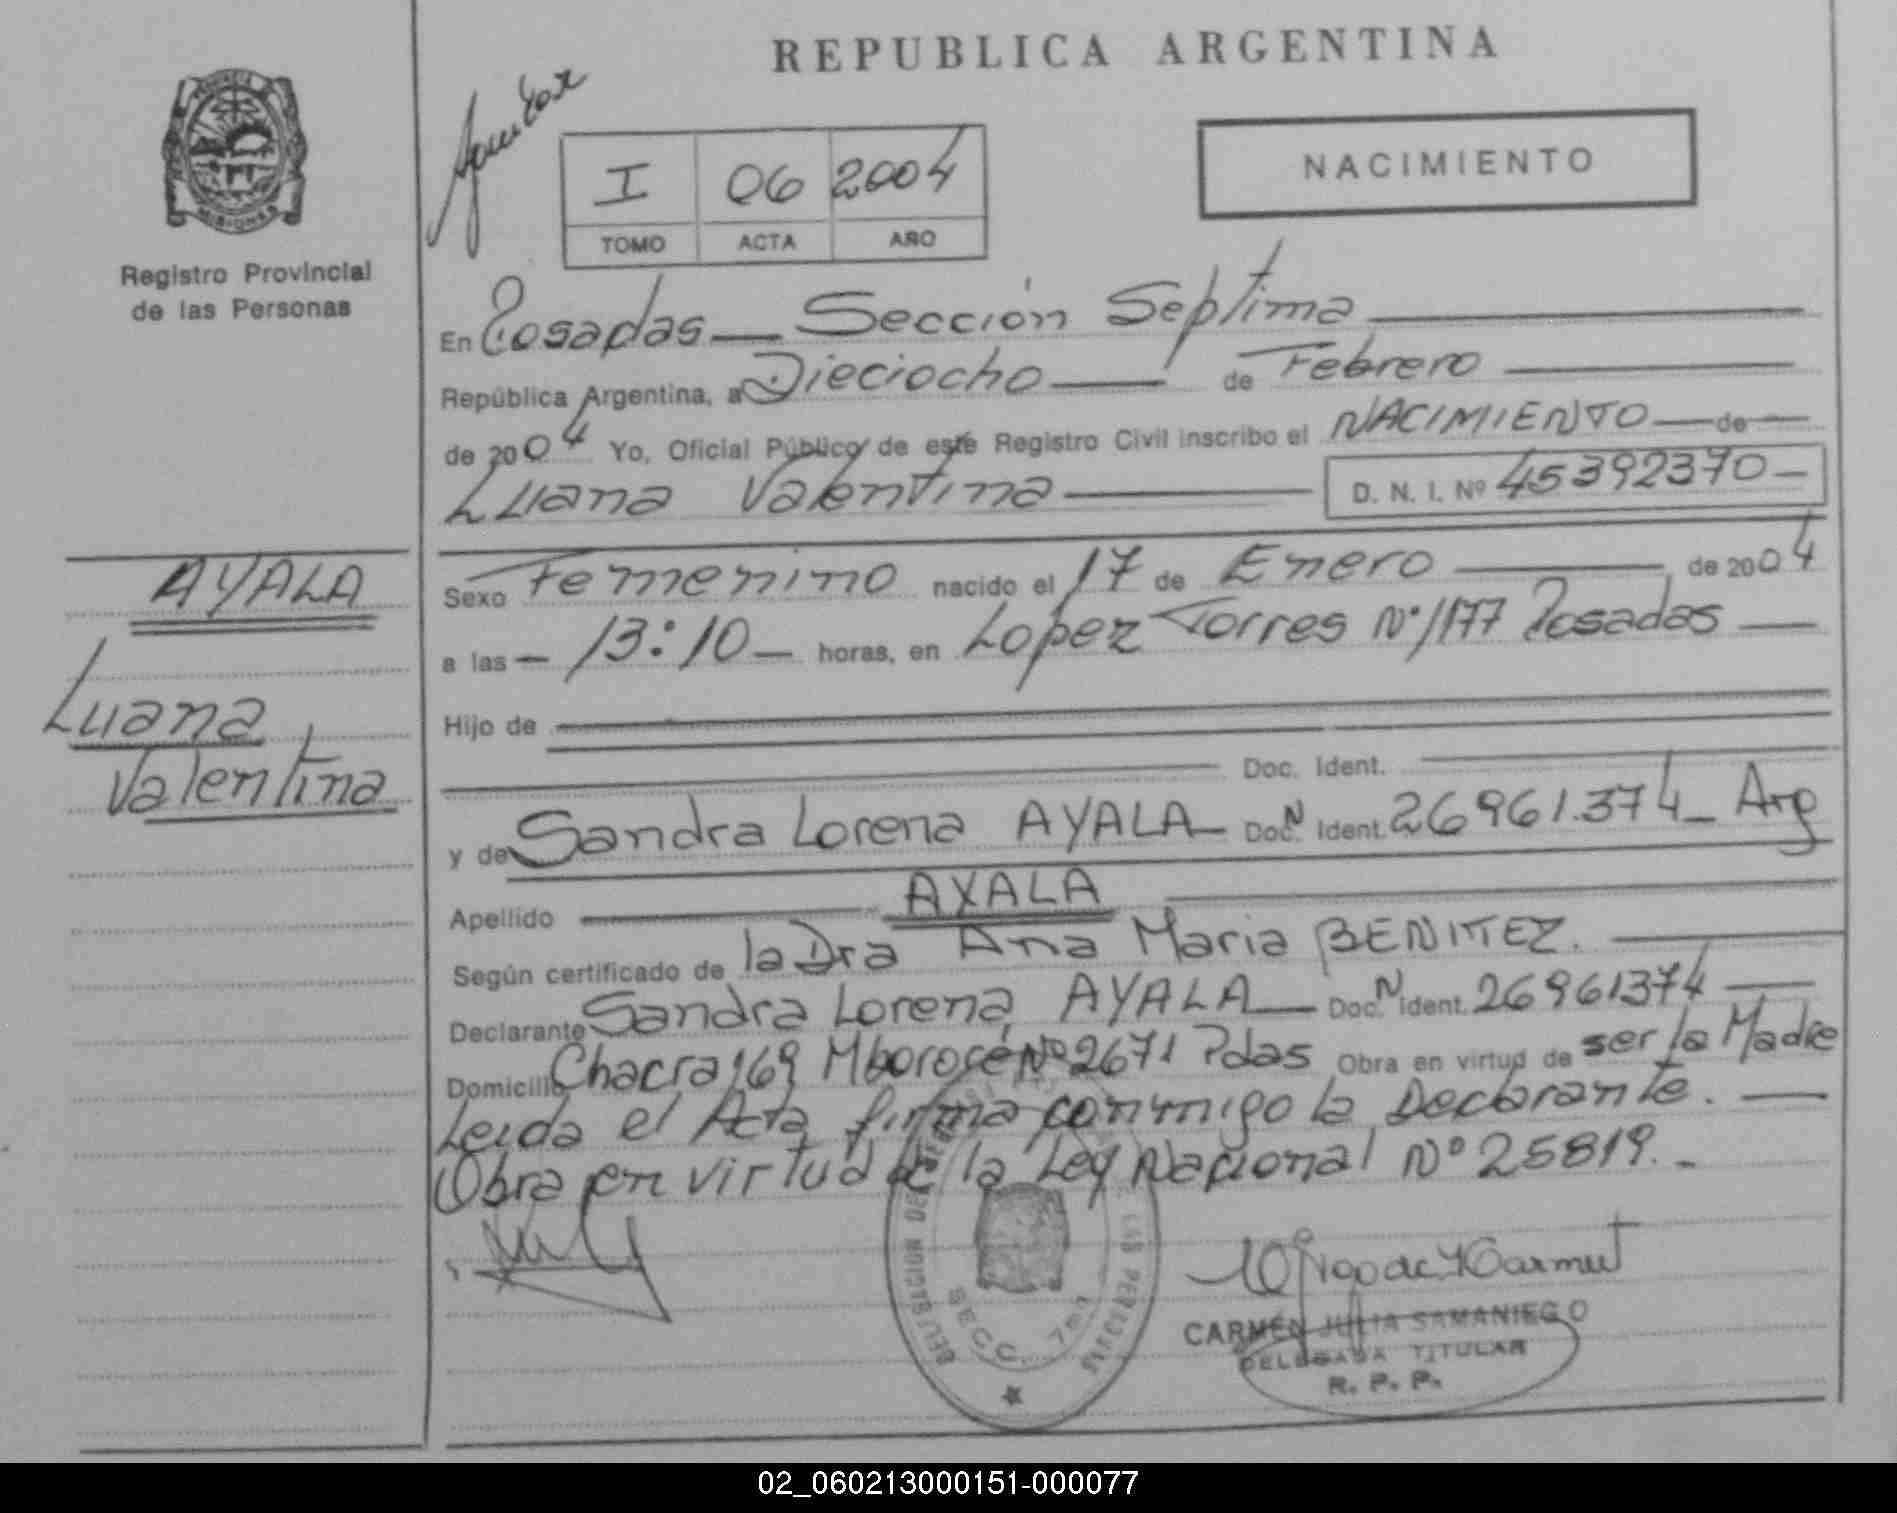 REPUBLICA ARGENTINA
PROVINCIA
MISIONES
Registro Provincial
de las Personas
I 06 2004
TOMO ACTA AÑO
NACIMIENTO
En Posadas — Sección Septima
República Argentina, a Dieciocho — de Febrero
de 2004 Yo, Oficial Público de este Registro Civil inscribo el NACIMIENTO — de —
Luana Valentina — D. N. I. Nº 45392370 —
AYALA
Luana
Valentina
Sexo Femenino nacido el 17 de Enero — de 2004
a las — 13:10 — horas, en Lopez Torres Nº 1177 Posadas —
Hijo de
Doc. Ident.
y de Sandra Lorena AYALA — Doc. N Ident. 26961.374 — Arg
Apellido AYALA
Según certificado de la Dra Ana Maria BENITEZ.
Declarante Sandra Lorena AYALA — Doc. N Ident. 26961374 —
Domicilio Chacra 169 Mbororé Nº 2671 Pdas Obra en virtud de ser la Madre
Leida el Acta firma conmigo la Declarante. —
Obra en virtud de la Ley Nacional Nº 25819. -
SECC. 7ma
LAS PERSONAS
CARMEN JULIA SAMANIEGO
DELEGADA TITULAR
R. P. P.
02_060213000151-000077